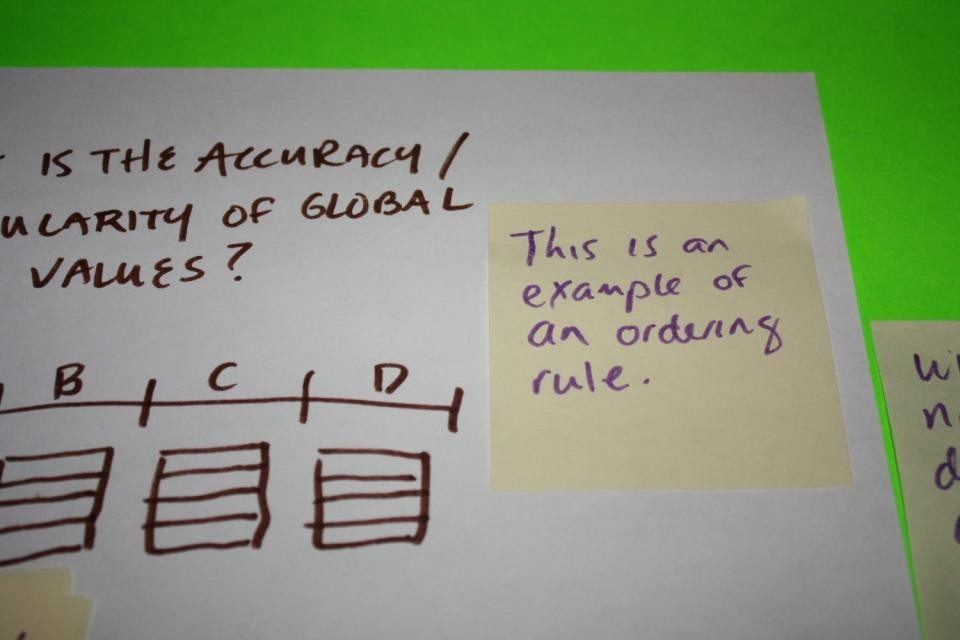 IS THE ACCURACY /
OF GLOBAL
VALUES?
B C D
This is an
example of
an ordering
rule.